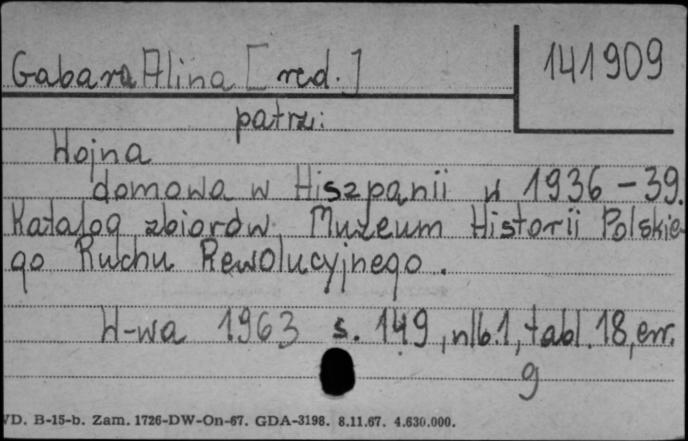 Gabara Alina [red.]
141909
patrz:
Wojna
domowa w Hiszpanii w 1936-39.
Katalog zbiorów Muzeum Historii Polskie-
go Ruchu Rewolucyjnego.
W-wa 1963 s. 149, nlb.1, tabl. 18, err.
g
VD. B-15-b. Zam. 1726-DW-On-67. GDA-3198. 8.11.67. 4.630.000.